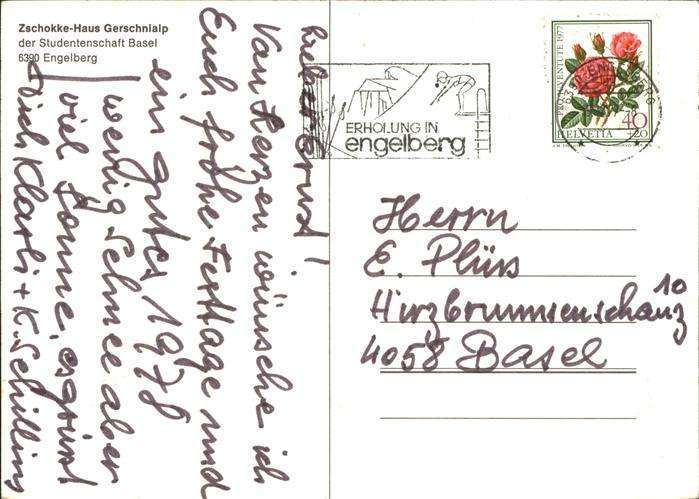 Zschokke-Haus Gerschnialp
der Studentenschaft Basel
6390 Engelberg
Lieber Ernst!
Von Herzen wünsche ich
Euch frohe Festtage und
ein gutes 1978
wenig Schnee aber
viel Sonne, es grüsst
Dich Klärli + K. Schilling
ERHOLUNG IN
engelberg
PRO JUVENTUTE 1977
40
+20
HELVETIA
Herrn
E. Plüss
Hirzbrunnenschanz 10
4058 Basel